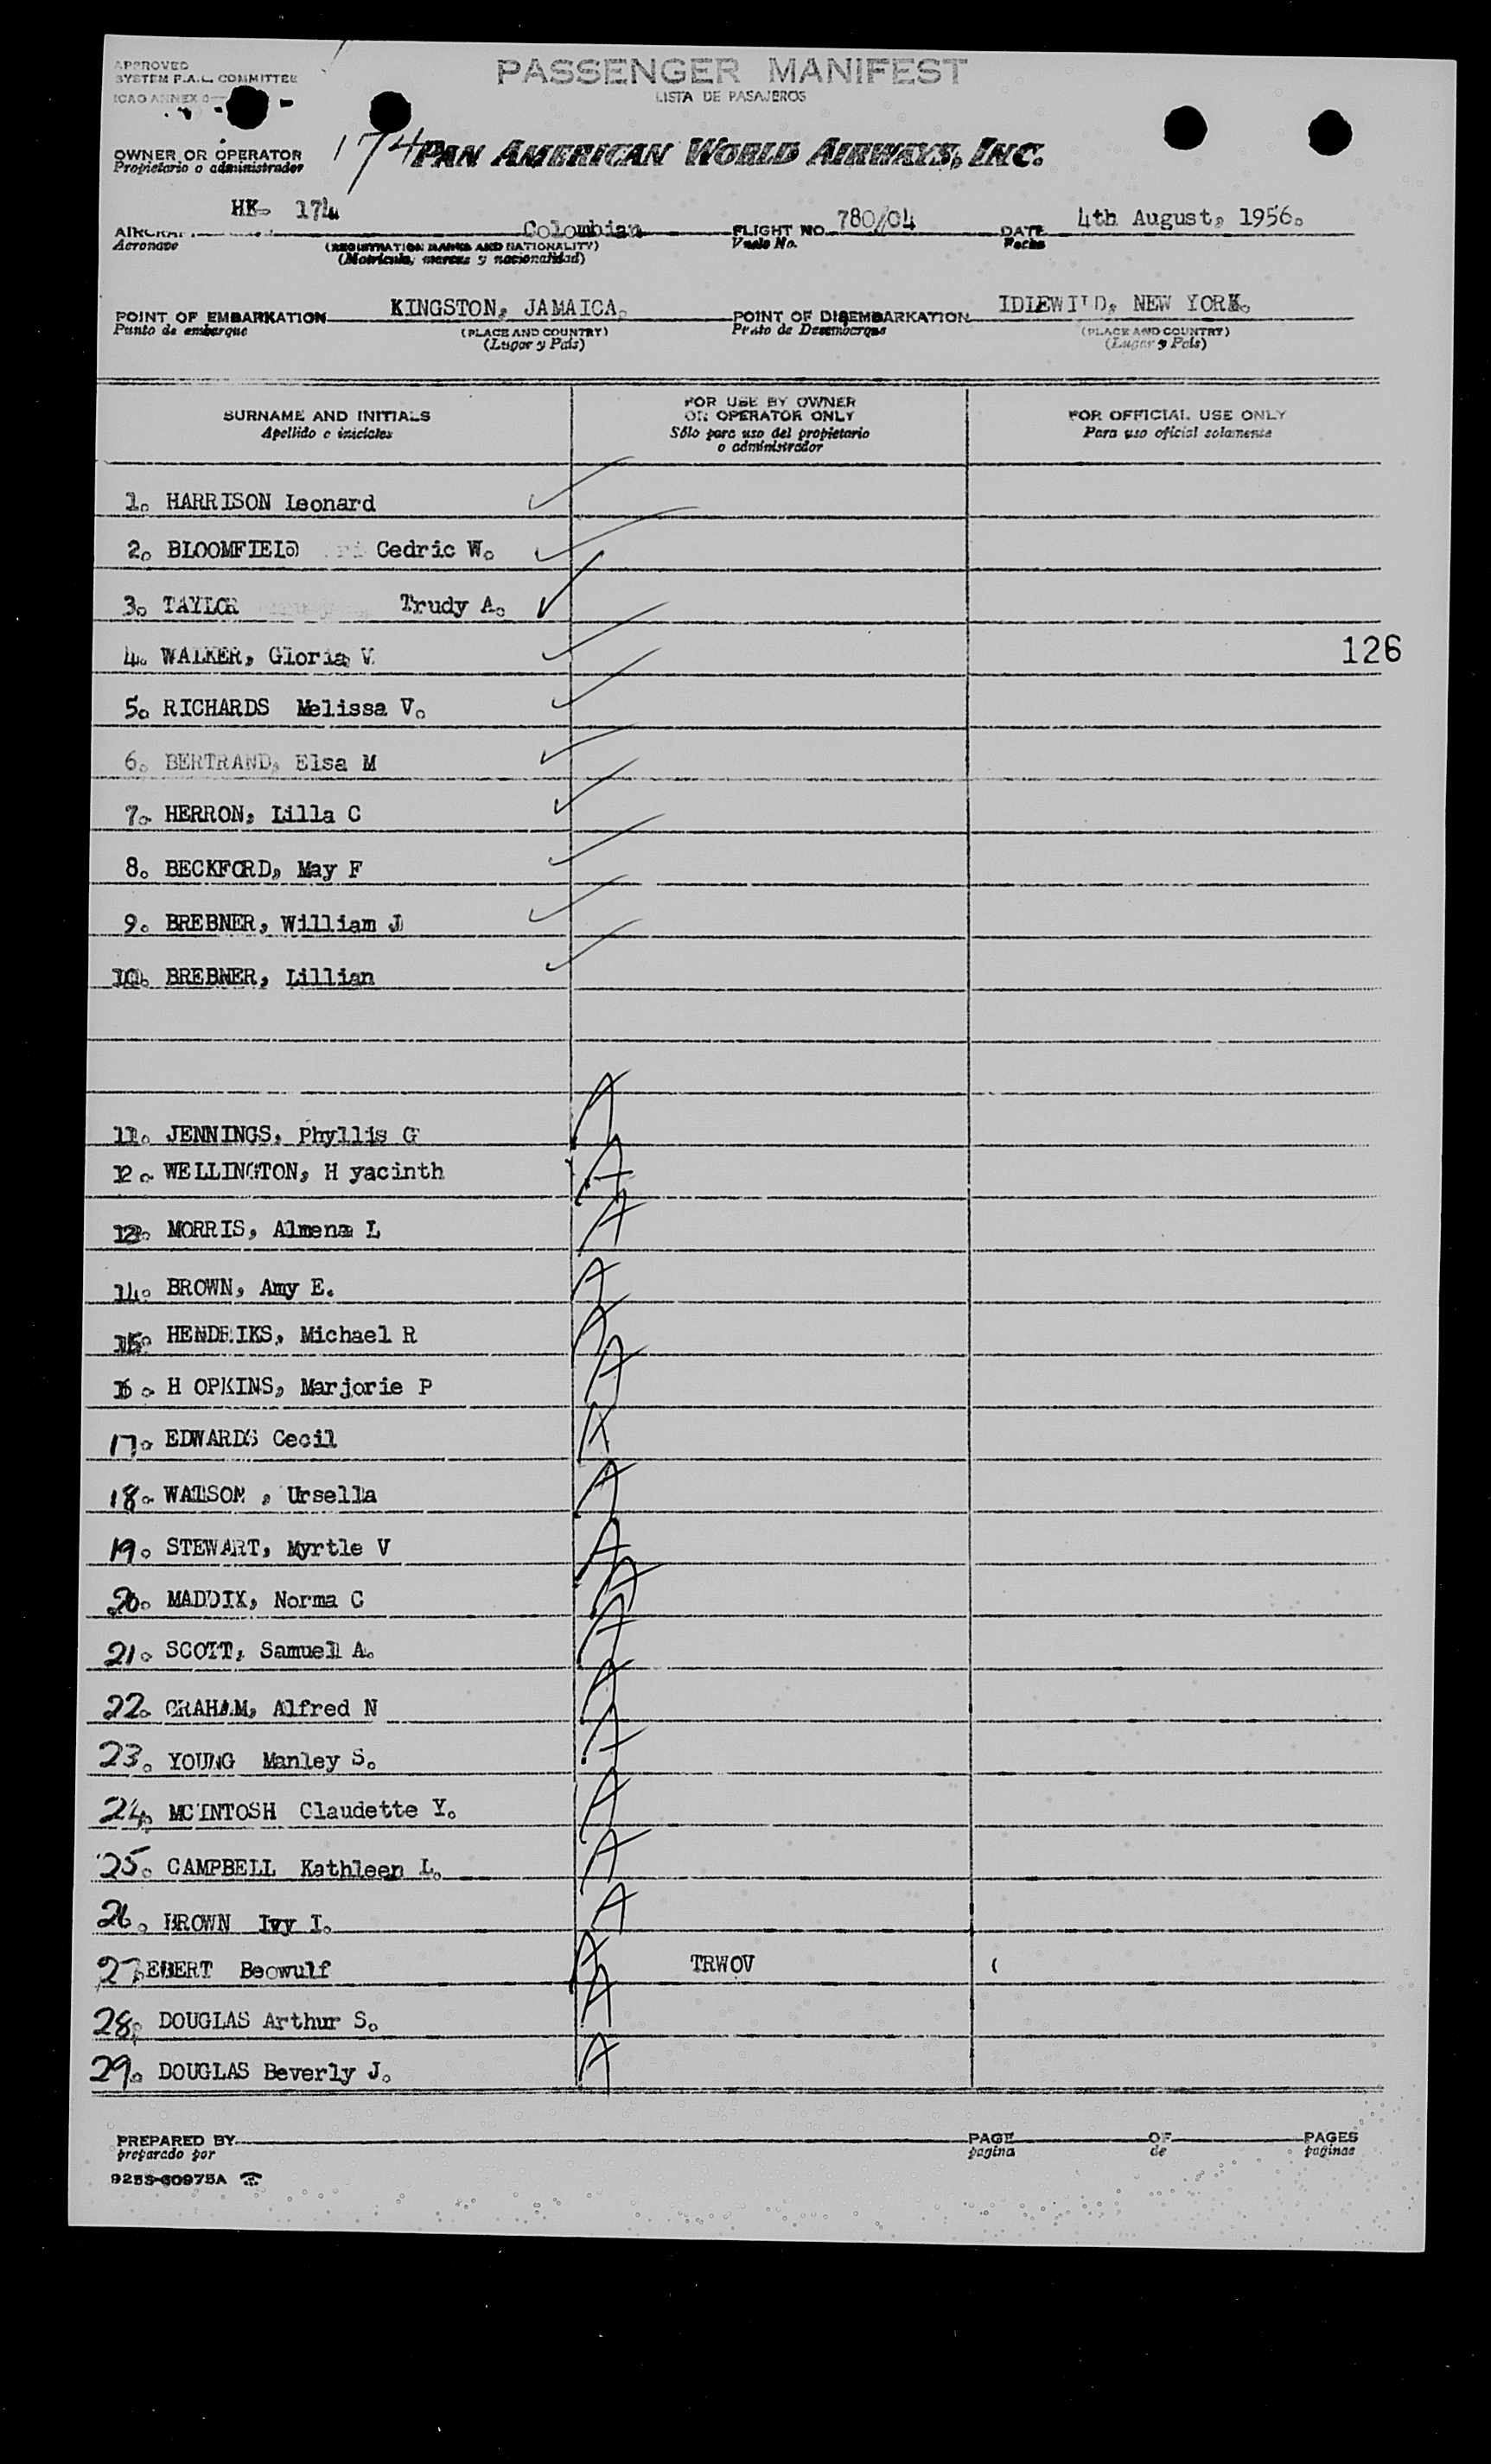 APPROVED
SYSTEM F.A.L. COMMITTEE
ICAO ANNEX
PASSENGER MANIFEST
LISTA DE PASAJEROS
OWNER OR OPERATOR
Propietario o administrador
174 PAN AMERICAN WORLD AIRWAYS, INC.
HK- 174 Colombian FLIGHT NO. 780/04 DATE 4th August, 1956.
Aeronave (REGISTRATION MARKS AND NATIONALITY) Vuelo No. Fecha
(Matricula, marcas y nacionalidad)
POINT OF EMBARKATION KINGSTON, JAMAICA. POINT OF DISEMBARKATION IDIEWILD, NEW YORK.
Punto de embarque (PLACE AND COUNTRY) Punto de Desembarque (PLACE AND COUNTRY)
(Lugar y País) (Lugar y País)
SURNAME AND INITIALS
Apellido e iniciales
FOR USE BY OWNER
OR OPERATOR ONLY
Sólo para uso del propietario
o administrador
FOR OFFICIAL USE ONLY
Para uso oficial solamente
1. HARRISON Leonard
2. BLOOMFIELD Cedric W.
3. TAYLOR Trudy A.
4. WALKER, Gloria V.
126
5. RICHARDS Melissa V.
6. BERTRAND, Elsa M
7. HERRON, Lilla C
8. BECKFORD, May F
9. BREBNER, William J
10. BREBNER, Lillian
11. JENNINGS, Phyllis G A
12. WELLINGTON, H yacinth A
13. MORRIS, Almena L A
14. BROWN, Amy E. A
15. HENDRIKS, Michael R A
16. H OPKINS, Marjorie P A
17. EDWARDS Cecil A
18. WATSON , Ursella A
19. STEWART, Myrtle V A
20. MADDIX, Norma C A
21. SCOTT, Samuell A. A
22. GRAHAM, Alfred N A
23. YOUNG Manley S. A
24. MC'INTOSH Claudette Y. A
25. CAMPBELL Kathleen L. A
26. BROWN Ivy I. A
27. EBERT Beowulf A TRWOV (
28. DOUGLAS Arthur S. A
29. DOUGLAS Beverly J. A
PREPARED BY PAGE OF PAGES
preparado por pagina de paginas
9255-60975A